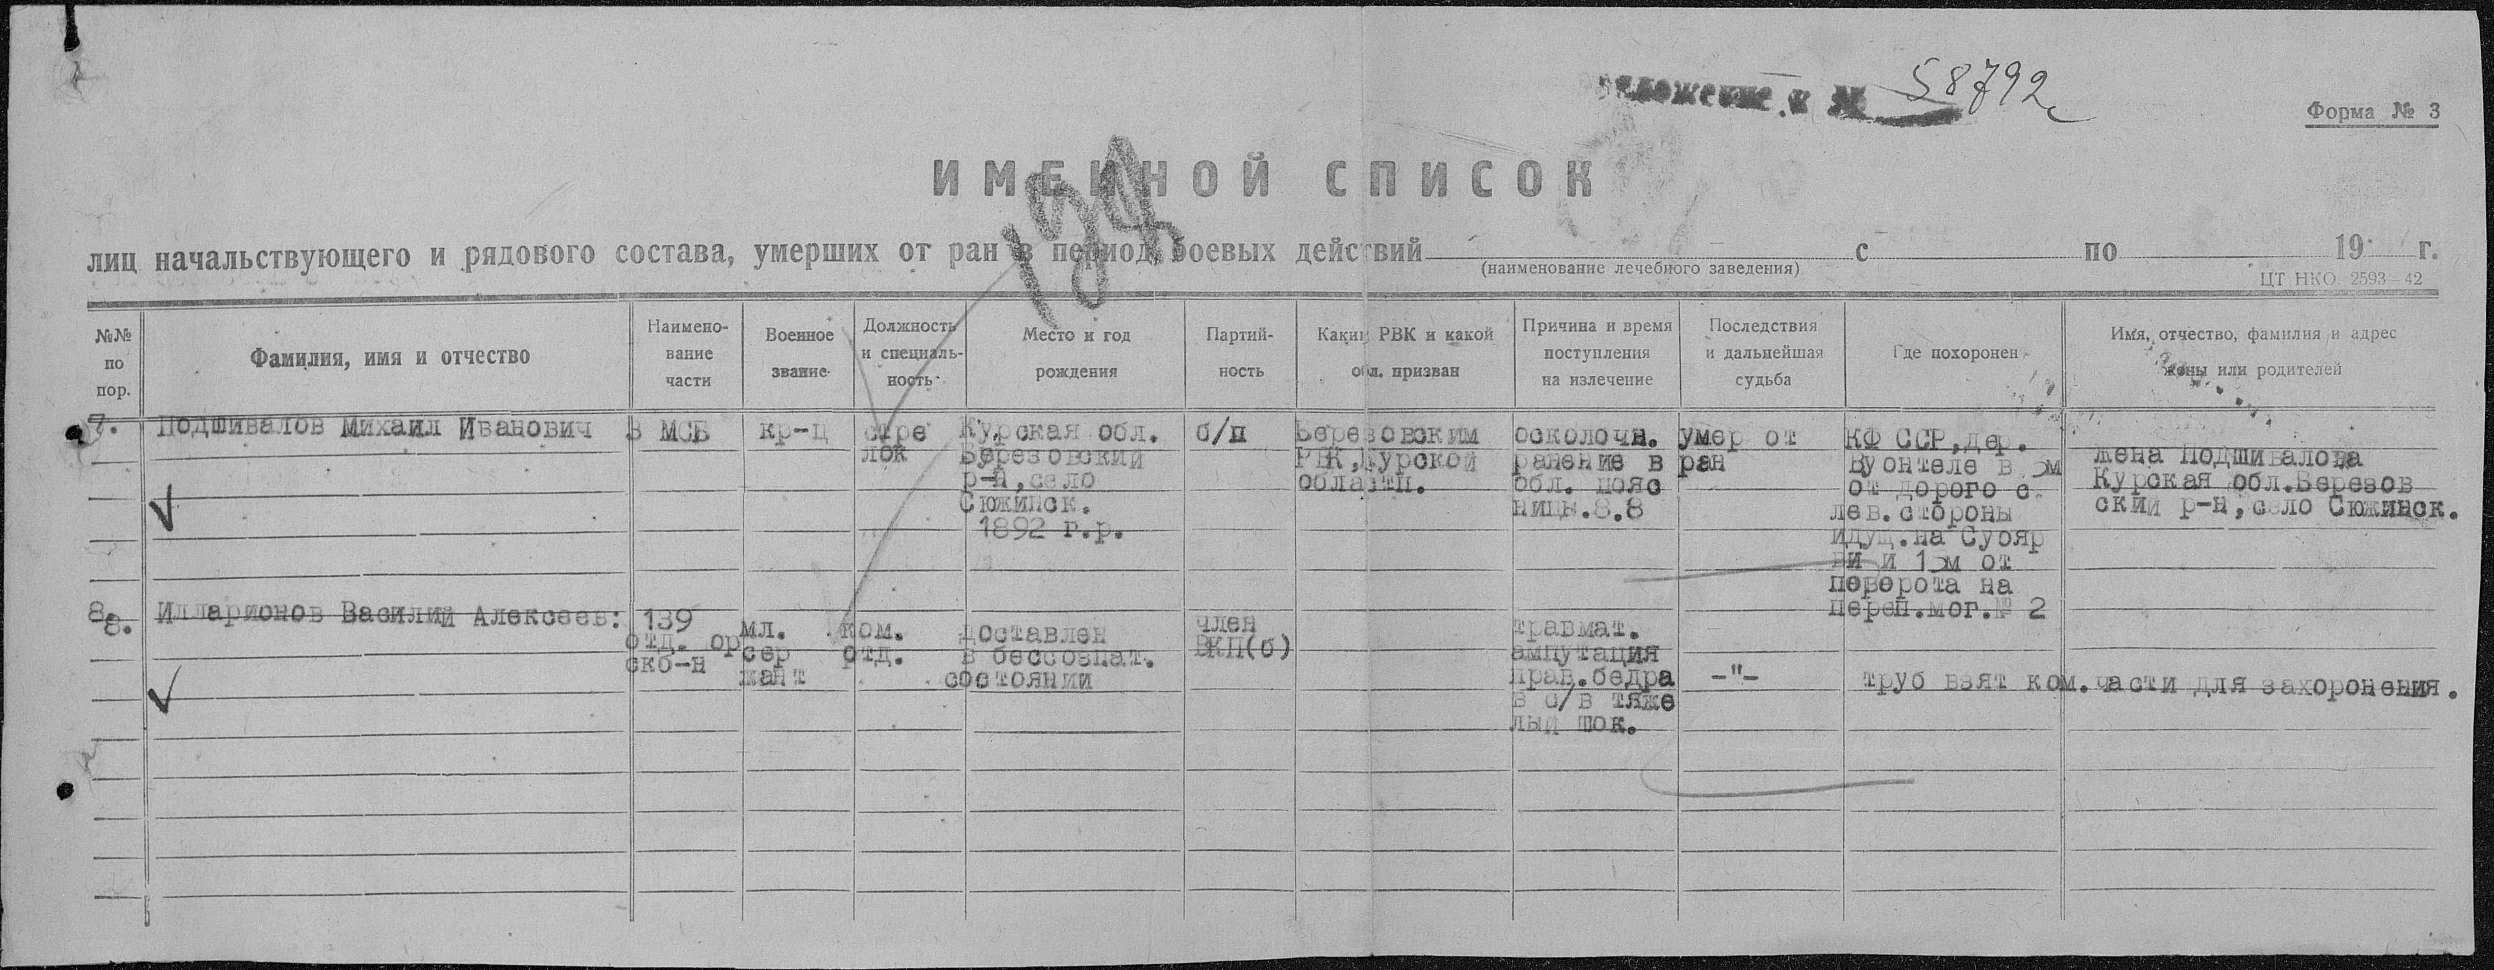 58792
Форма № 3
ИМЕННОЙ СПИСОК
лиц начальствующего и рядового состава, умерших от ран в период боевых действий с по 19 г.
(наименование лечебного заведения)
ЦТ НКО 2593—42
№№ по пор.
Фамилия, имя и отчество
Наимено-
вание
части
Военное
звание
Должность
и специаль-
ность
Место и год
рождения
Партий-
ность
Каким РВК и какой
обл. призван
Причина и время
поступления
на излечение
Последствия
и дальнейшая
судьба
Где похоронен
Имя, отчество, фамилия и адрес
жены или родителей
7.
Подшивалов Михаил Иванович
3 МСБ
кр-ц
стре
лок
Курская обл.
Березовский
р-н, село
Сюжинск.
1892 г.р.
б/п
Березовским
РВК, Курской
области.
осколочн.
ранение в
обл. пояс
ницы.8.8
умер от
ран
КФ ССР, дер.
Вуонтеле в 5м
от дорого с
лев. стороны
идущ. на Суояр
ви и 15м от
поворота на
переп.мог.№ 2
жена Подшивалова
Курская обл.Березов
ский р-н, село Сюжинск.
8.
8.
Илларионов Василий Алексеев:
139
отд. ор
скб-н
мл.
сер
жант
ком.
отд.
доставлен
в бессознат.
состоянии
член
ВКП(б)
травмат.
ампутация
прав.бедра
в с/в тяже
лый шок.
-"-
труб взят ком. части для захоронения.